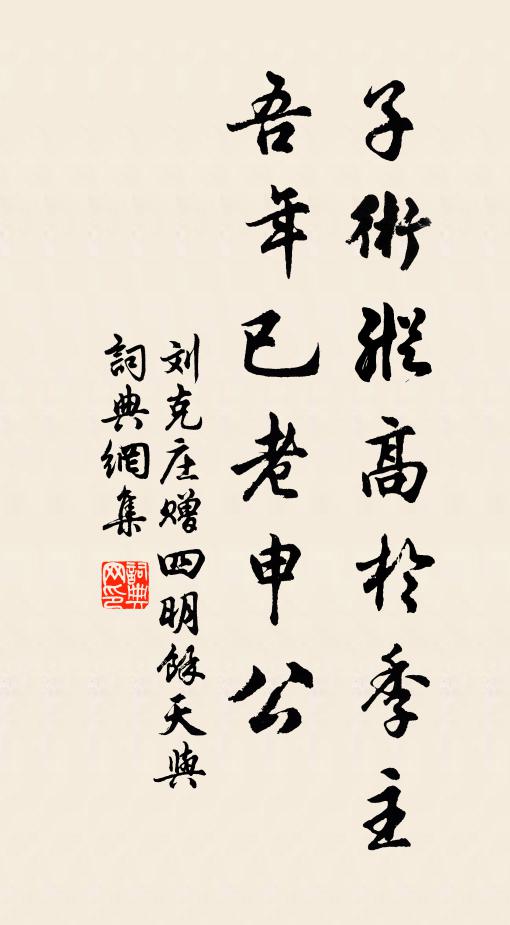 子術縱高於季主
吾年已老申公
刘克庄赠四明餘天與
詞典網集
詞典
网印